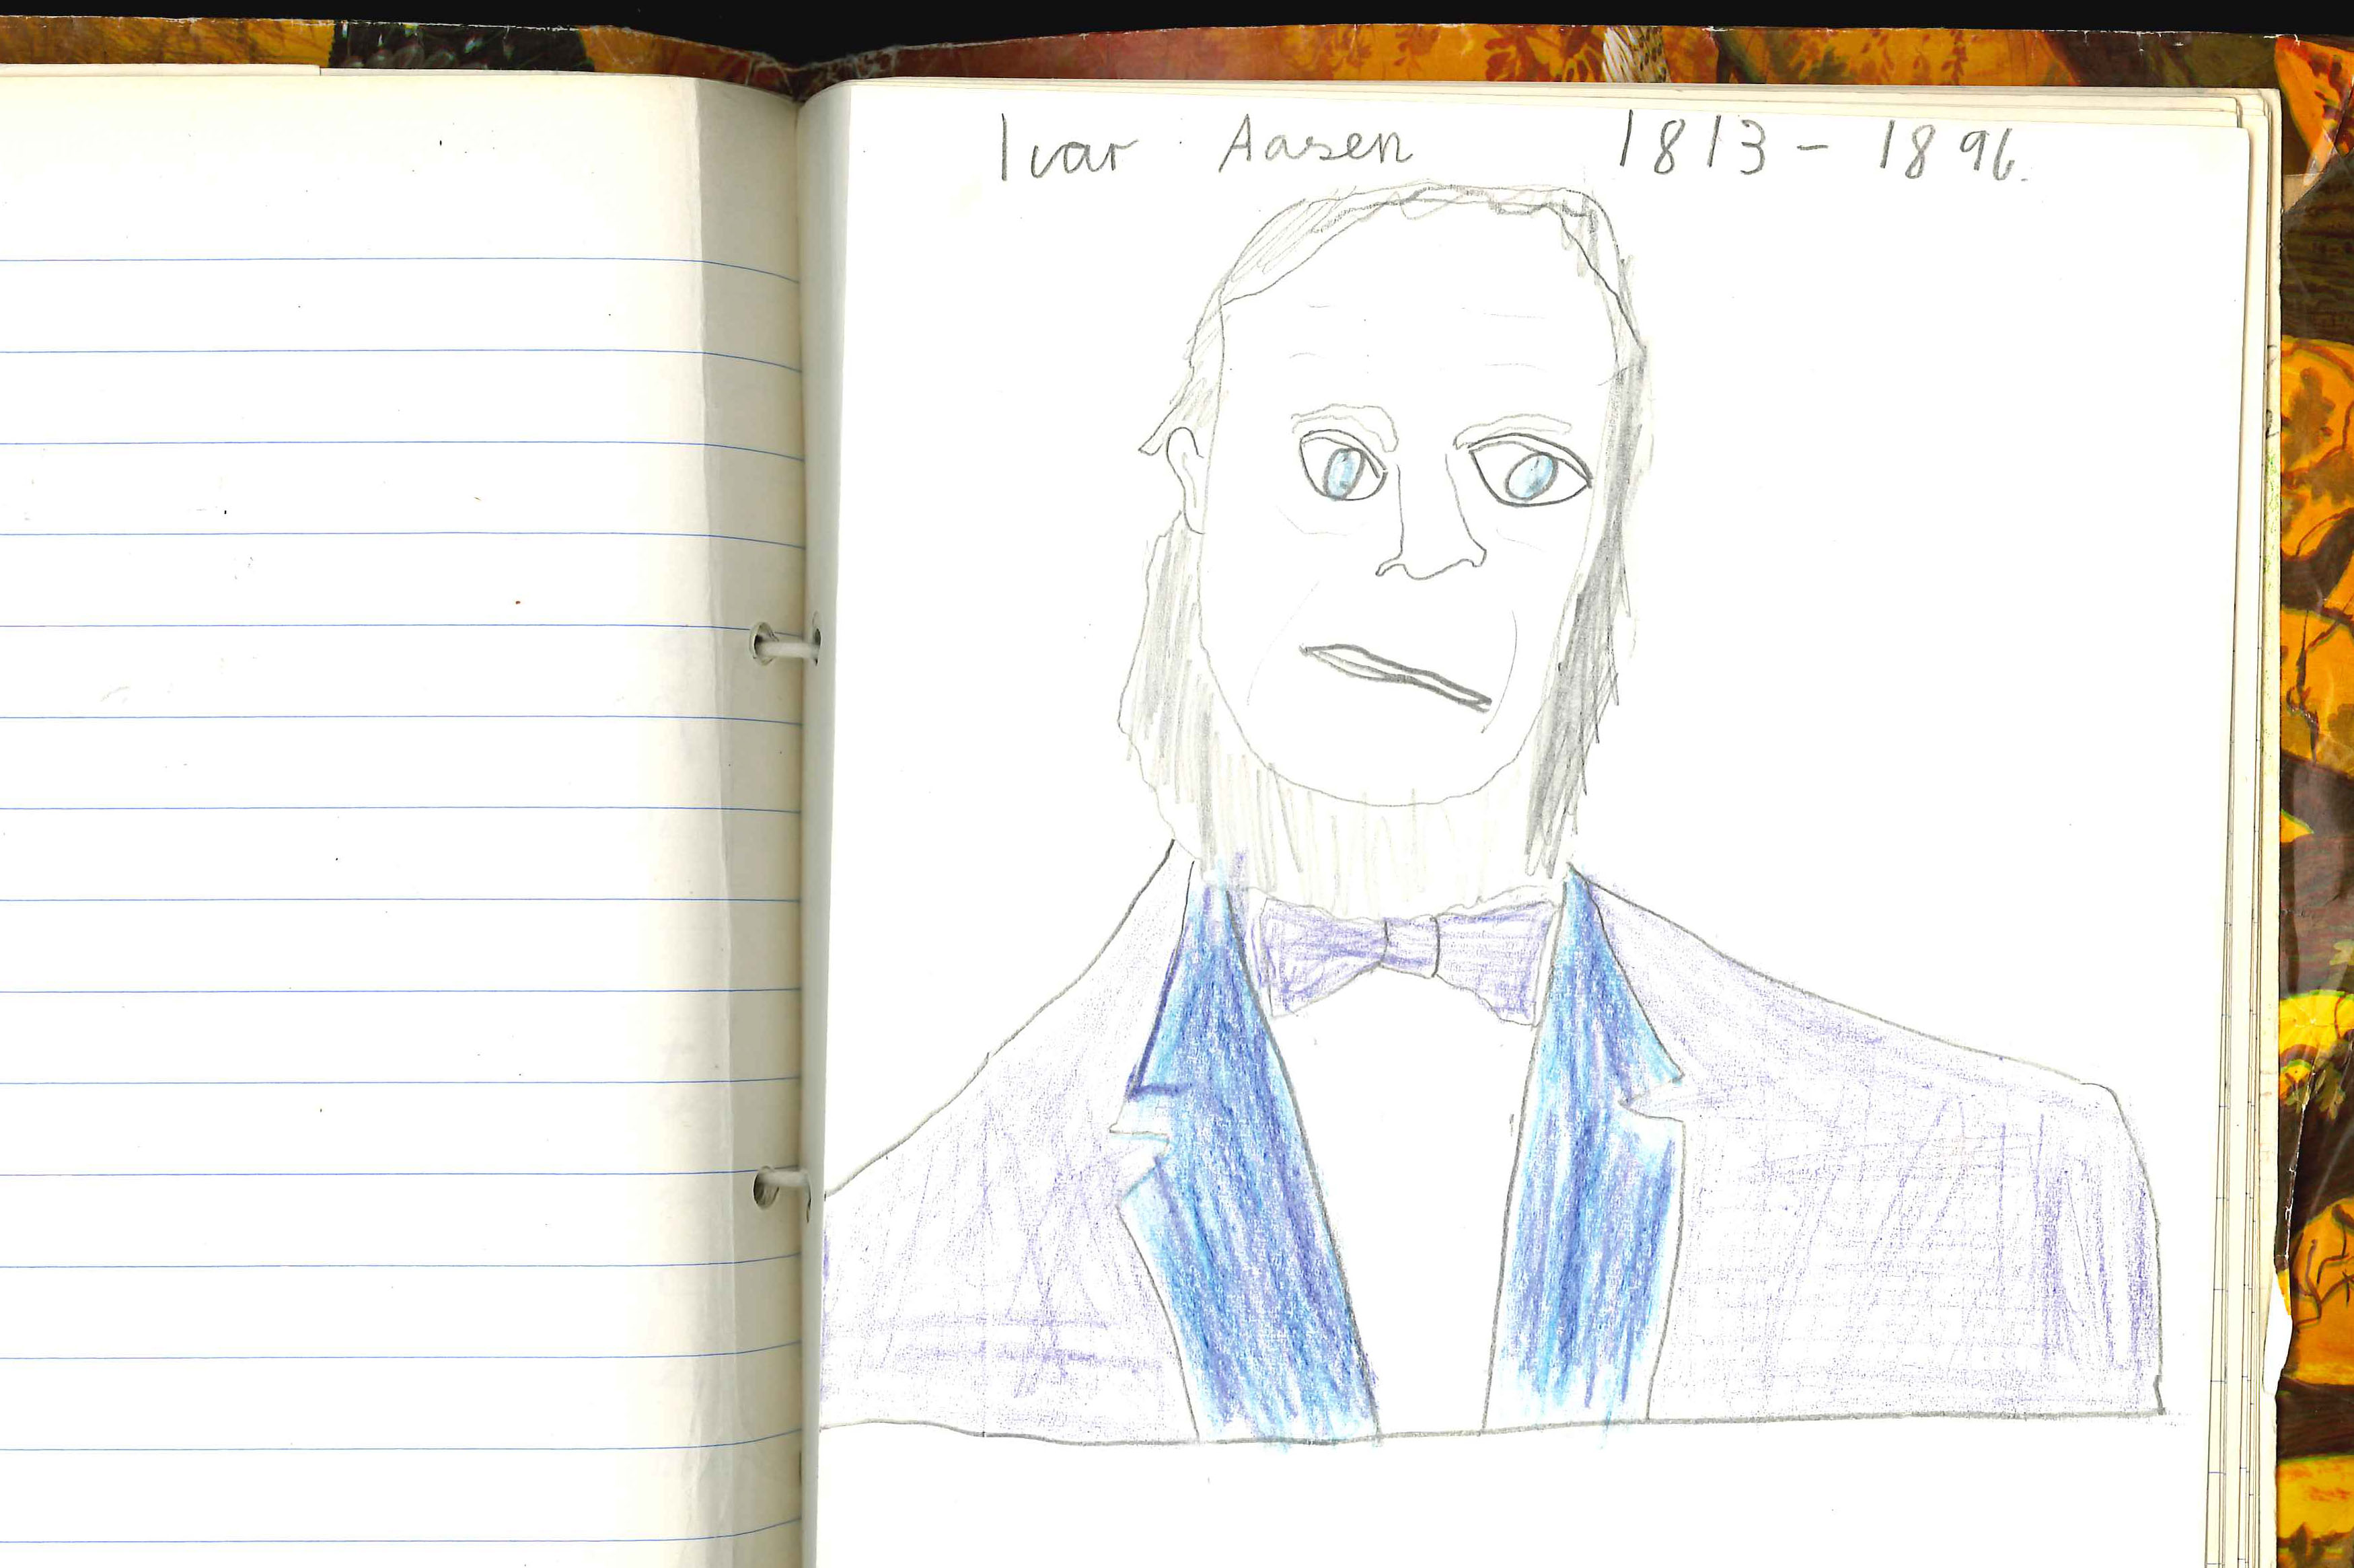 Ivar Aasen 1813 - 1896.